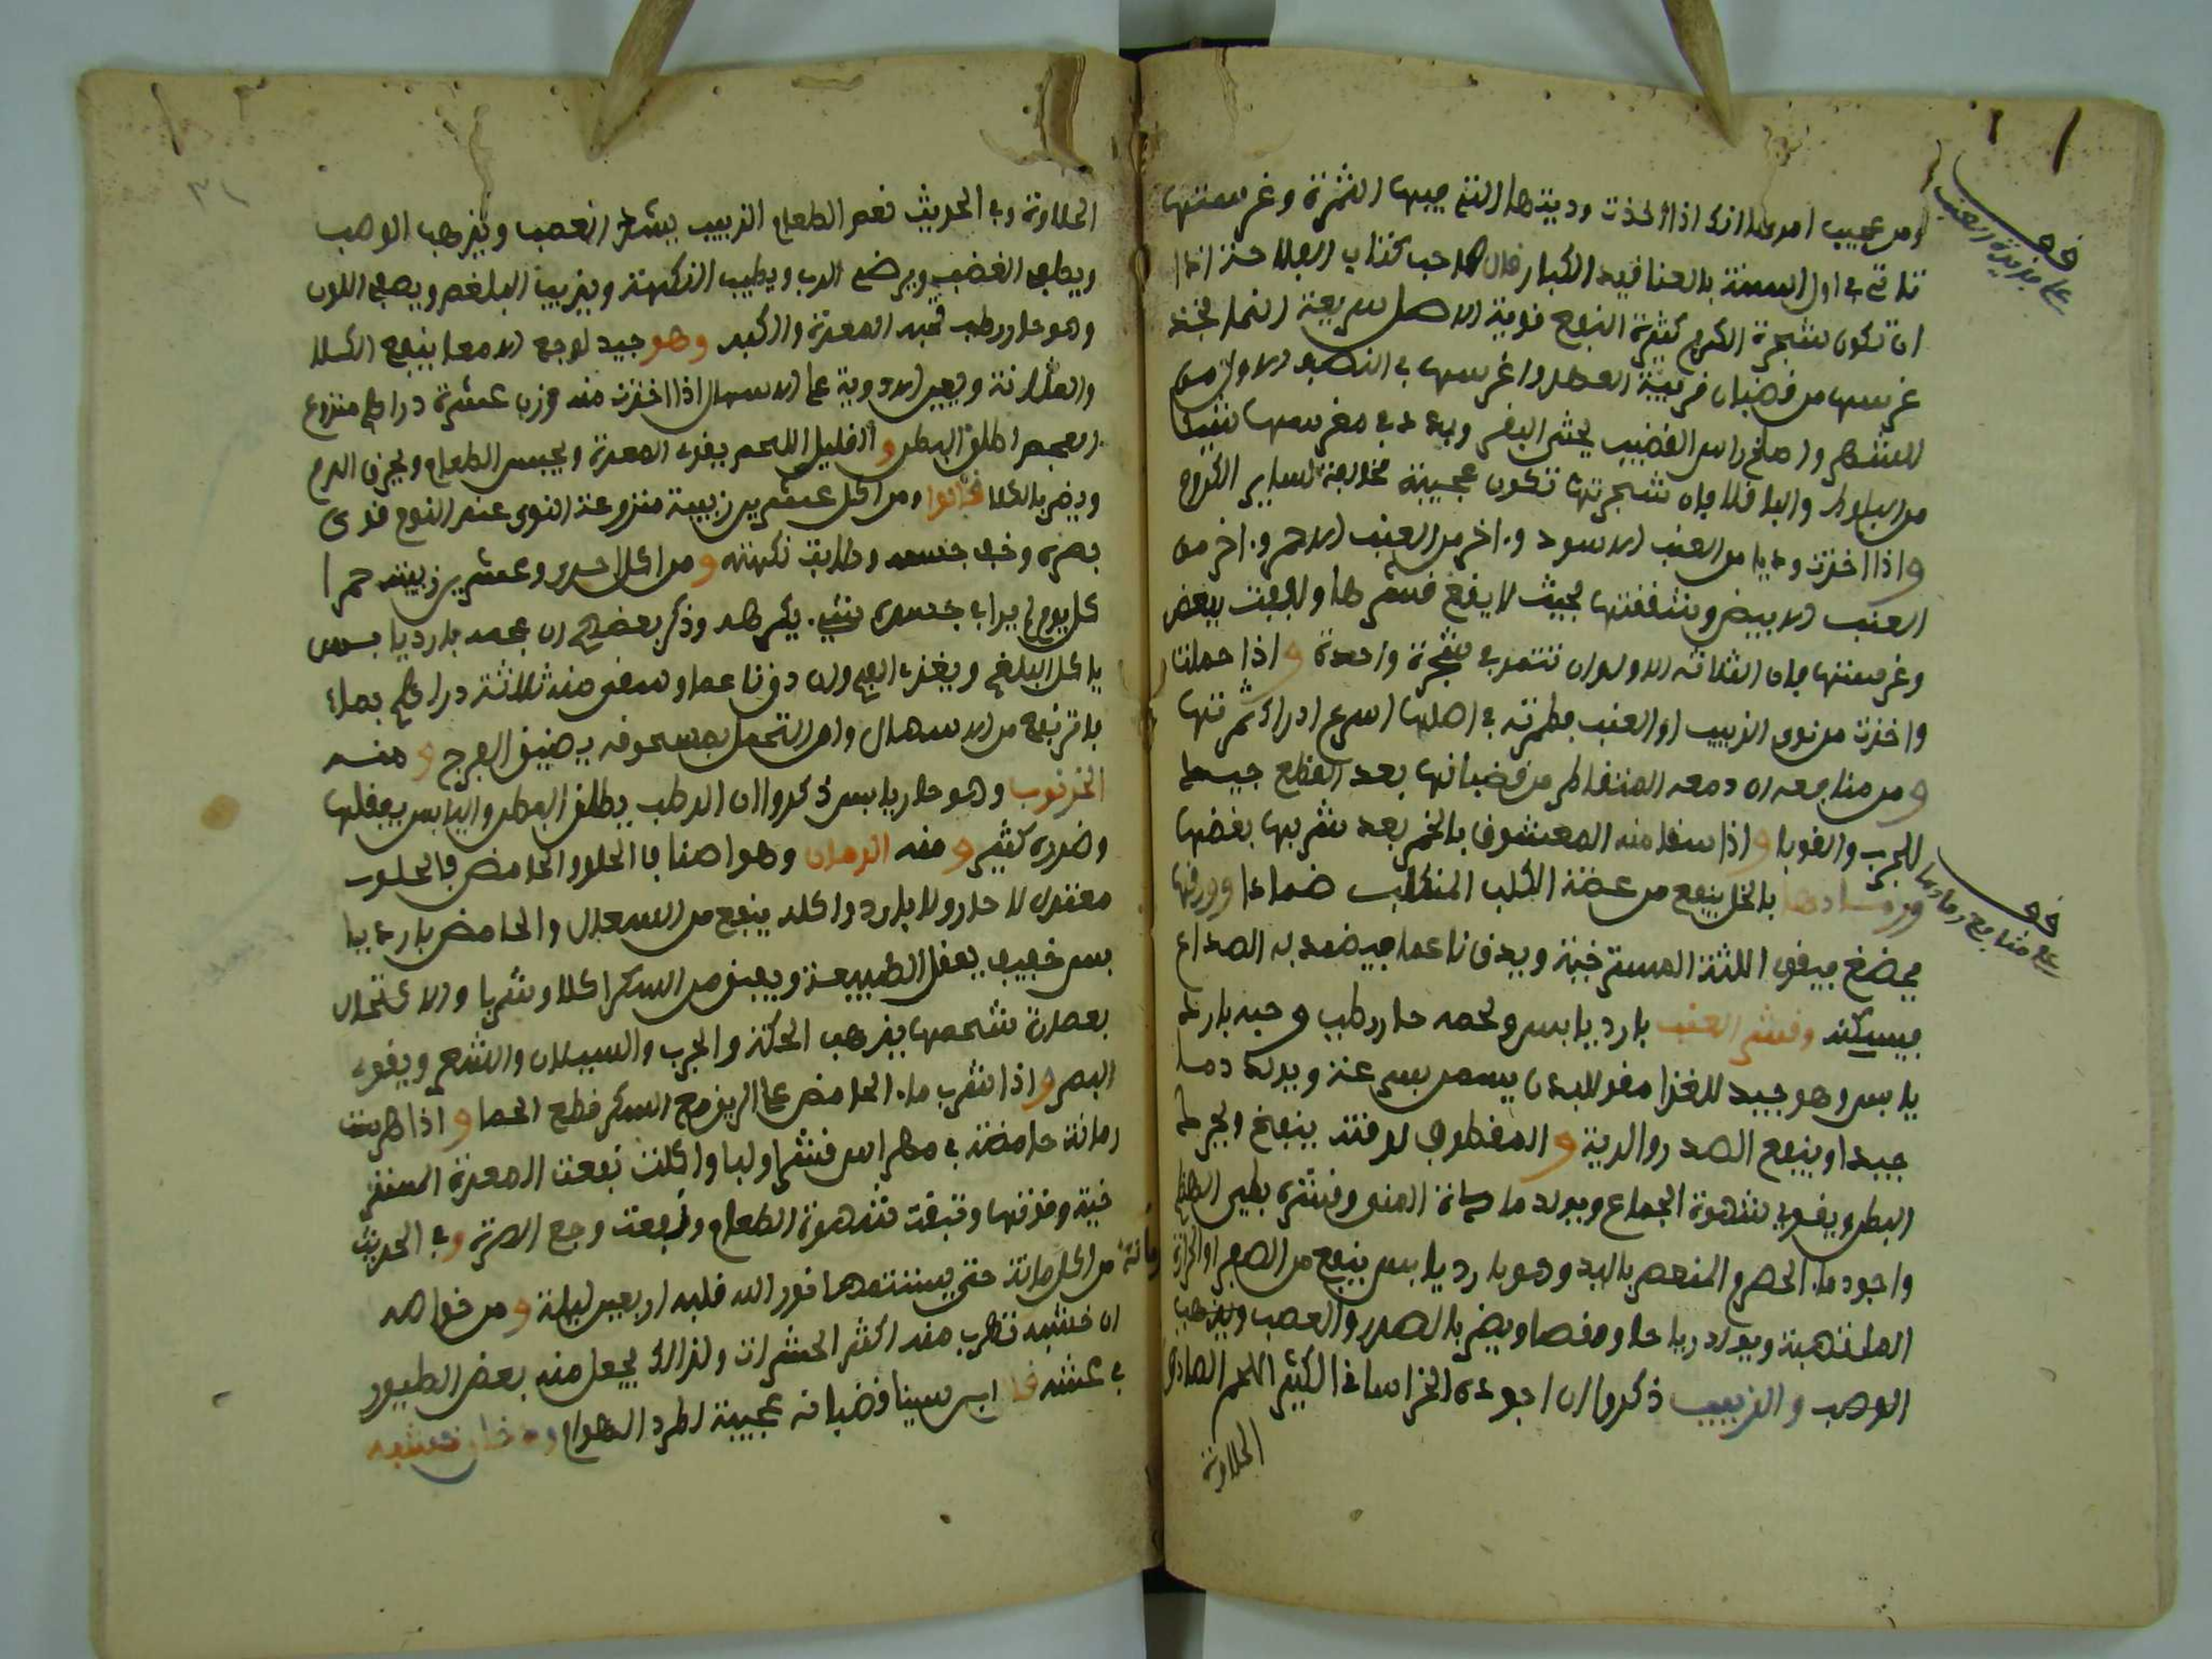 ومن عجيب امرها انك اذا اخذت وديتها التي فيها الثمرة وغرستها
تاتي في اول السنة بالعناقيد الكبار قال صاحب كتاب الفلاحة اذا
ان تكون شجرة الكرم كثيرة النفع قوية الاصل سريعة النما فخذ
غرسها من قضبان قريبة العهد واغرسها في النصف الاول من
الشهر واطلخ راس القضيب بخثي البقر وبدد في مغرسها شيئا
من البلوط والباقلا فان شجرتها تكون عجيبة مخالفة لساير الكروم
واذا اخذت وديا من العنب الاسود واخر من العنب الاحمر واخر من
العنب الابيض وشققتها بحيث لا يقع قشرها ولففت ببعض
وغرستها فان الثلاثة الالوان تثمر في شجرة واحدة واذا حملت
واخذت من نوى الزبيب او العنب فطمرته في اصلها اسرع ادراك ثمرتها
ومن منافعه ان دمعه المتقاطر من قضبانها بعد القطع جيد
للجرب والقوبا واذا سقا منه المعشوق بالخمر بعد شربها بغضها
ورمادها بالخل ينفع من عضة الكلب المتكلب ضمادا وورقها
يمضغ فيقوى اللثة المسترخية ويدق ناعما فيضمد به الصداع
فيسكنه وقشر العنب بارد يابس ولحمه حار رطب وحبه بارد
يابس وهو جيد للغذا مقو للبدن يسمن بسرعة ويولد دما
جيدا وينفع الصدر والرية والمقطوف لوقته ينفخ ويحرك
البطن ويقوي شهوة الجماع ويولد مادة المني وقشره بطيء الهضم
واجود ما الحصرم المنعصر باليد وهو بارد يابس ينفع من الصفرا والحرارة
الملتهبة ويولد رياحا ومغصا ويضر بالصدر والعصب ويذهب
الوصب والزبيب ذكروا ان اجوده الخراساني الكثير اللحم الصادق
الحلاوة
قف على فايدة العنب
قف على منافع رمادها
الحلاوة وفي الحديث نعم الطعام الزبيب يشد العصب ويذهب الوصب
ويطفي الغضب ويرضي الرب ويطيب النكهة ويذهب البلغم ويصفي اللون
وهو حار رطب يحبه المعدة والكبد وهو جيد لوجع الامعا ينفع الكلا
والمثانة ويعين الادوية على الاسهال اذا اخذت منه وزن عشرة دراهم منزوع
العجم اطلق البطن والقليل اللحم يقوي المعدة ويحبس الطعام ويحرق الدم
ويضر بالكلا قالوا ومن اكل عشرين زبيبة منزوعة النوى عند النوم قوى
بصره وخف جسمه وطابت نكهته ومن اكل احدى وعشرين زبيبة حمرا
كل يوم لم ير في جسده شيئا يكرهه وذكر بعضهم ان عجمه بارد يابس
ياكل البلغم ويغذي وان دق ناعما وسقي منه ثلاثة دراهم بماء
بارد نفع من الاسهال وان التحمل بمسحوقه يضيق الفرج ومنه
الخرنوب وهو حار يابس ذكروا ان الرطب يطلق البطن واليابس يعقلها
وضرره كثير ومنه الرمان وهو اصناف الحلو والحامض فالحلو
معتدل لا حار ولا بارد واكله ينفع من السعال والحامض بارد يا
بس خفيف يعقل الطبيعة ويعين من السكر اكلا وشربا والاكتحال
بعصارة شحمها يذهب الحكة والجرب والسيلان والشعر ويقوي
البصر واذا شرب ماء الحامض على الريق مع السكر قطع الحما واذا هرست
رمانة حامضة في مهراس قشرا ولبا واكلت نفعت المعدة المستر
خية وقوتها وفتقت شهوة الطعام ونفعت وجع الصرة وفي الحديث
من اكل رمانة حتى يستتمها نور الله قلبه اربعين ليلة ومن خواصه
ان خشبه تهرب منه اكثر الحشرات ولذالك يجعل منه بعض الطيور
في عشه قال ابن سينا قضبانه عجيبة لطرد الهوام ودخان خشبه